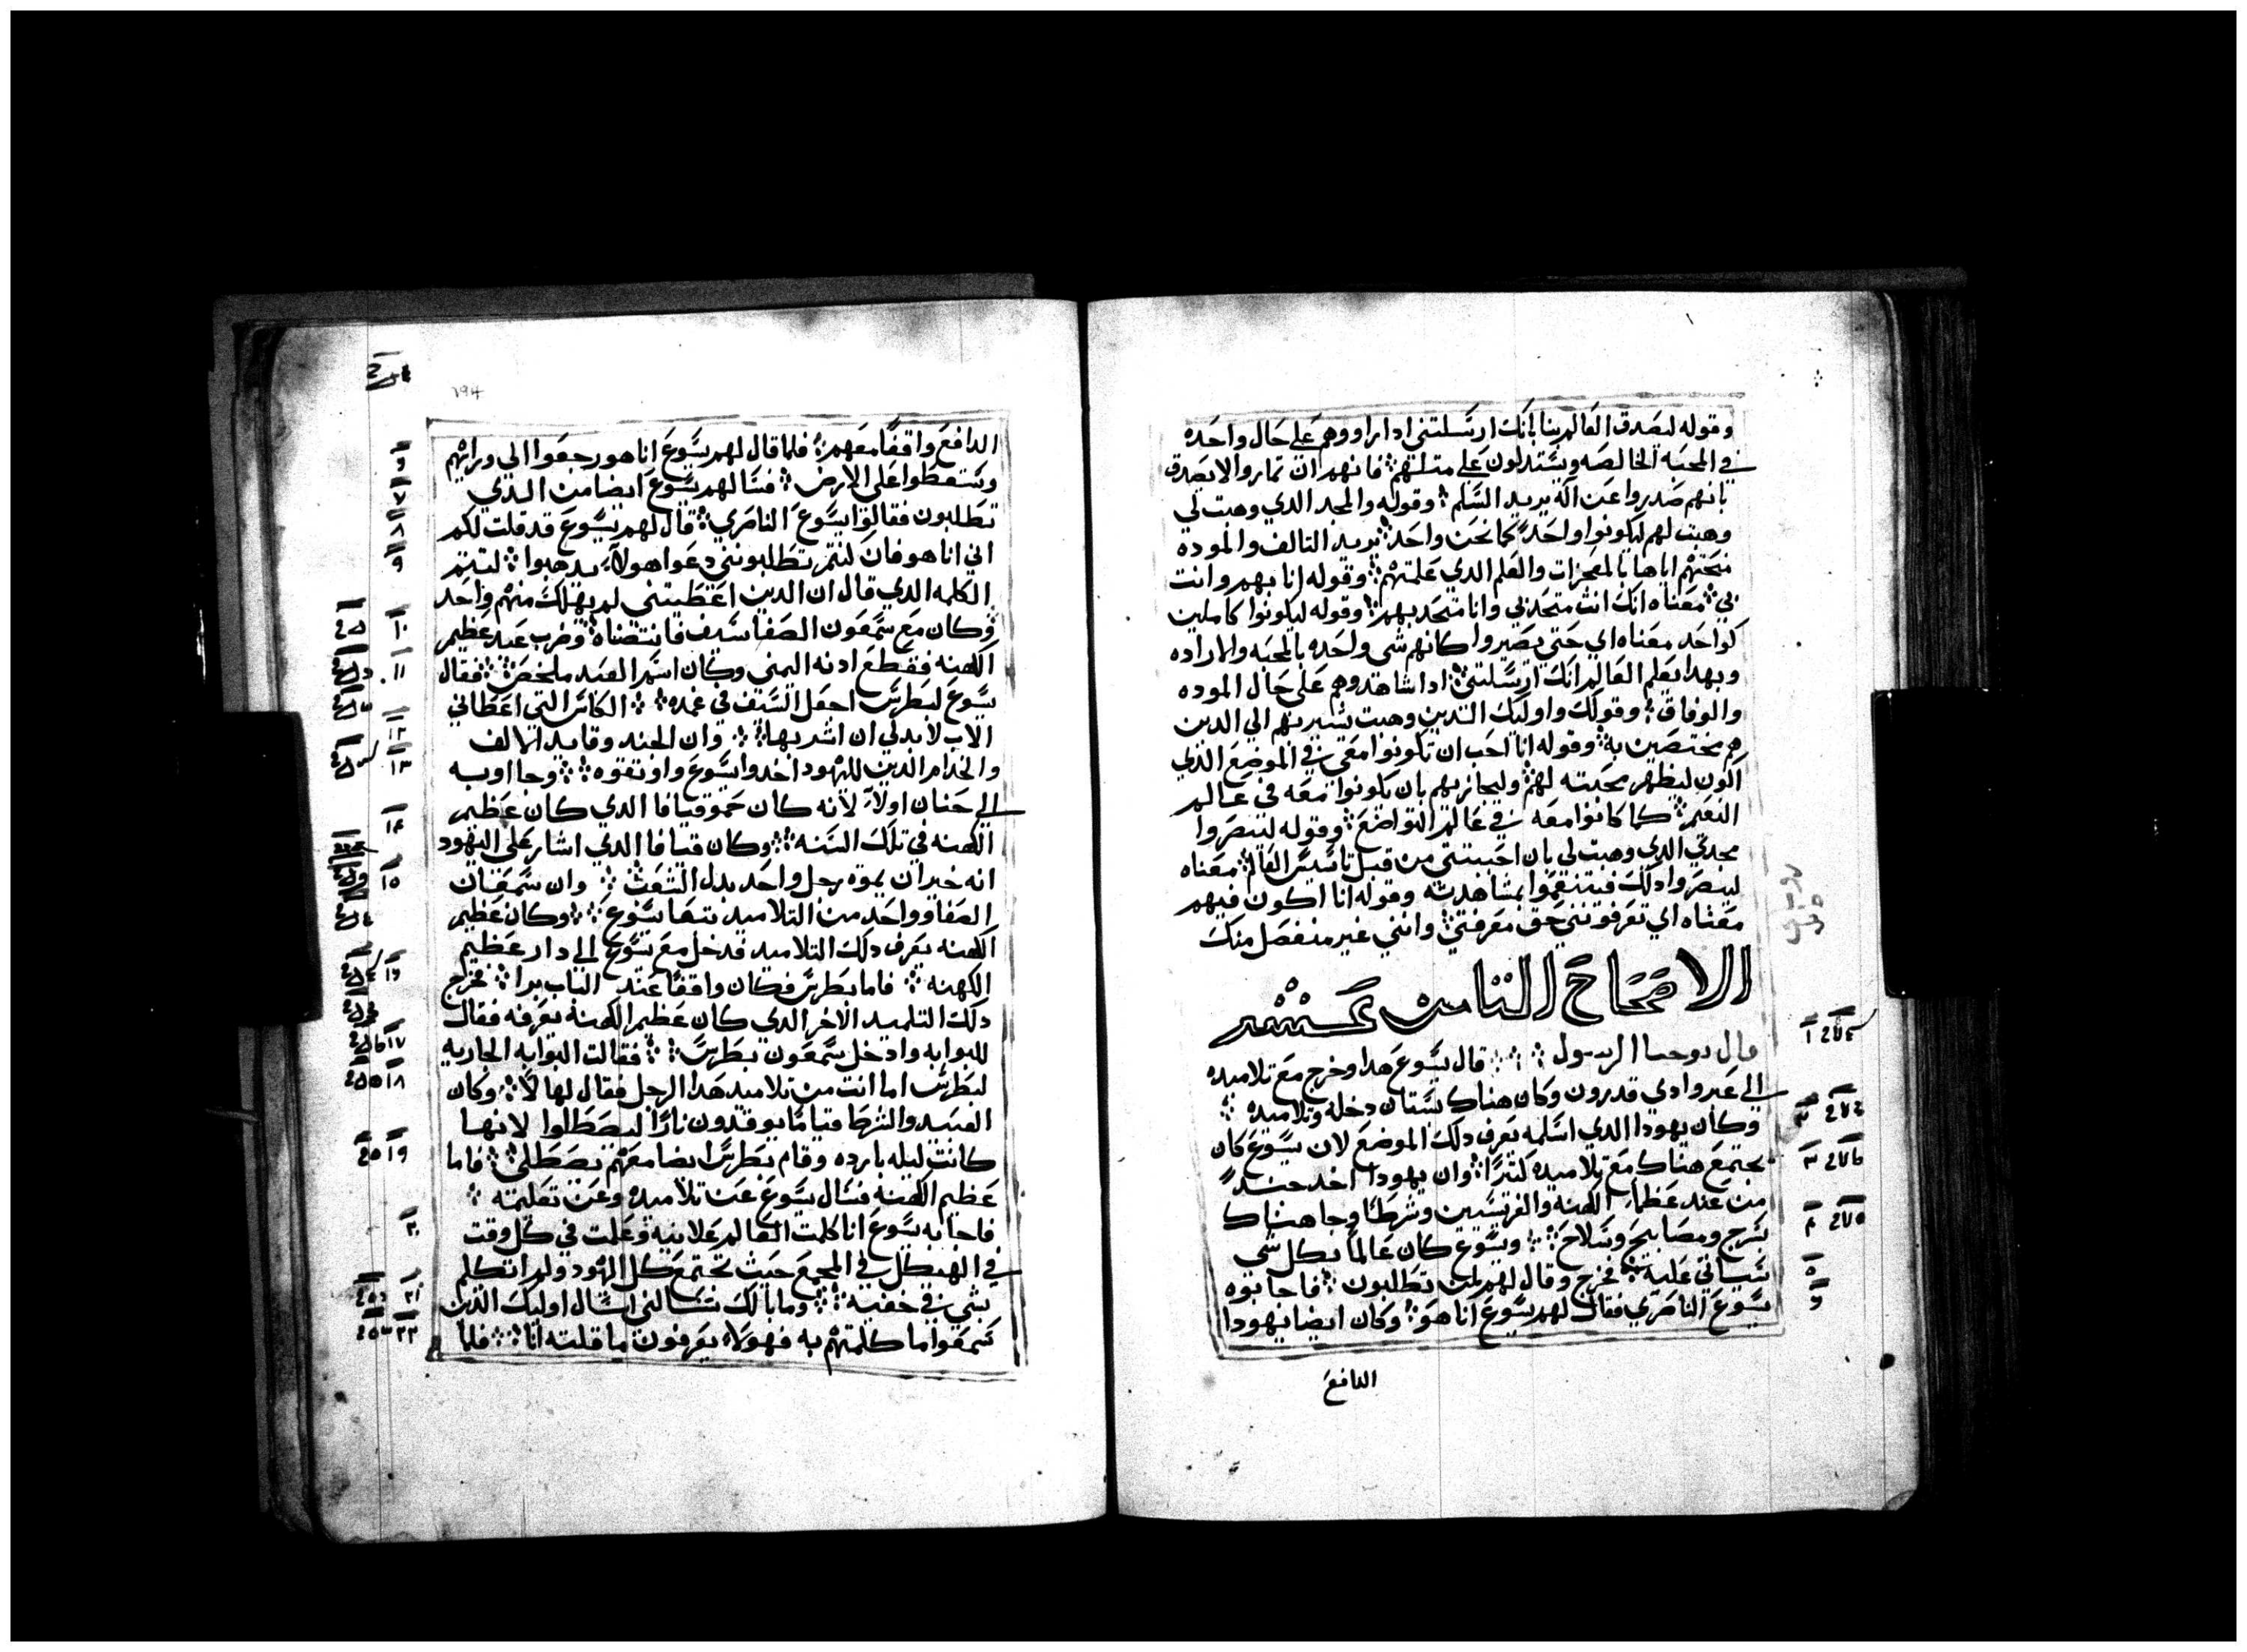 وقوله ليصدق العالم بنا بانك ارسلتني ادا راووهم علي حال واحده
في المحبه الخالصه ويستدلون علي متلهم فانهم ان تماروا لا يصدق
بانهم صدروا عن اله يريد السلم وقوله والمجد الدي وهبت لي
وهبت لهم ليكونوا واحد كما نحن واحد يريد التالف والموده
منحتهم اياها بالمعجزات والعلم الدي علمتهم وقوله انا بهم وانت
بي معناه انك انت متحد بي وانا متحد بهم وقوله ليكونوا كاملين
كواحد معناه اي حتي يصيروا كانهم شي واحده بالمحبه والاراده
وبهدا يعلم العالم انك ارسلتني ادا شاهدوهم علي حال الموده
والوفاق وقولك واوليك الدين وهبت يشير بهم الي الدين
هم مختصين به وقوله انا احب ان تكونوا معي في الموضع الدي
اكون ليظهر محبته لهم وليجازيهم بان يكونوا معه في عالم
النعيم كما كانوا معه في عالم التواضع وقوله لينصروا
مجدي الدي وهبت لي بان احببتني من قبل تاسيس العالم معناه
ليبصروا دلك فيتنعموا بمشاهدته وقوله انا اكون فيهم
معناه اي تعرفونني حق معرفتي وانني غير منفصل منك
الاصحاح التامن عشر
قال يوحنا الرسول قال يسوع هدا وخرج مع تلاميده
الي عبر وادي قدرون وكان هناك بستان دخله وتلاميده
وكان يهودا الدي اسلمه يعرف دلك الموضع لان يسوع كان
يجتمع هناك مع تلاميده كتيرا وان يهودا اخد جند
من عند عظما الكهنه والفريسيين وشرطا وجا هناك
بسرج ومصابيح وسلاح ويسوع كان عالما بكل شي
سياتي عليه فخرج وقال لهم لمن تطلبون فاجابوه
يسوع الناصري فقال لهم يسوع انا هو وكان ايضا يهودا
الدافع
الدافع واقفا معهم فلما قال لهم يسوع انا هو رجعوا الي ورايهم
وسقطوا علي الارض فسالهم يسوع ايضا من الدي
تطلبون فقالوا يسوع الناصري قال لهم يسوع قد قلت لكم
اني انا هو فان كنتم تطلبونني دعوا هولاء يدهبوا لتتم
الكلمه الدي قال ان الدين اعطيتني لم يهلك منهم واحد
وكان مع سمعون الصفا سيف فانتضاه وضرب عبد عظيم
الكهنه فقطع ادنه اليمني وكان اسم العبد ملخص فقال
يسوع لبطرس اجعل السيف في غمده الكاس التي اعطاني
الاب لا بد لي ان اشربها وان الجند وقايد الالف
والخدام الدين لليهود اخدوا يسوع واوتقوه وجااوبه
الي حنان اولا لانه كان حمو قيافا الدي كان عظيم
الكهنه في تلك السنه وكان قيافا الدي اشار علي اليهود
انه خير ان يموه رجل واحد بدل الشعب وان سمعان
الصفا وواحد من التلاميد تبعا يسوع وكان عظيم
الكهنه يعرف دلك التلاميد فدخل مع يسوع الي دار عظيم
الكهنه فاما بطرس فكان واقفا عند الباب برا فخرج
دلك التلميد الاخر الدي كان عظيم الكهنة يعرفه فقال
للبوابه وادخل سمعون بطرس فقالت البوابه الجاريه
لبطرس اما انت من تلاميد هدا الرجل فقال لها لا وكان
العبيد والشرطا قياما يوقدون نارا ليصطلوا لانها
كانت ليله بارده وقام بطرس ايضا معهم يصطلي فاما
عظيم الكهنه فسال يسوع عن تلاميده وعن تعليمه
فاجابه يسوع انا كلمت العالم علانيه وعلمت في كل وقت
في الهيكل في المجمع حيث تجتمع كل اليهود ولم اتكلم
بشي في خفيه وما بالك تسالني اسال اوليك الدين
سمعوا ما كلمتهم به فهولاء يعرفون ما قلته انا فلما